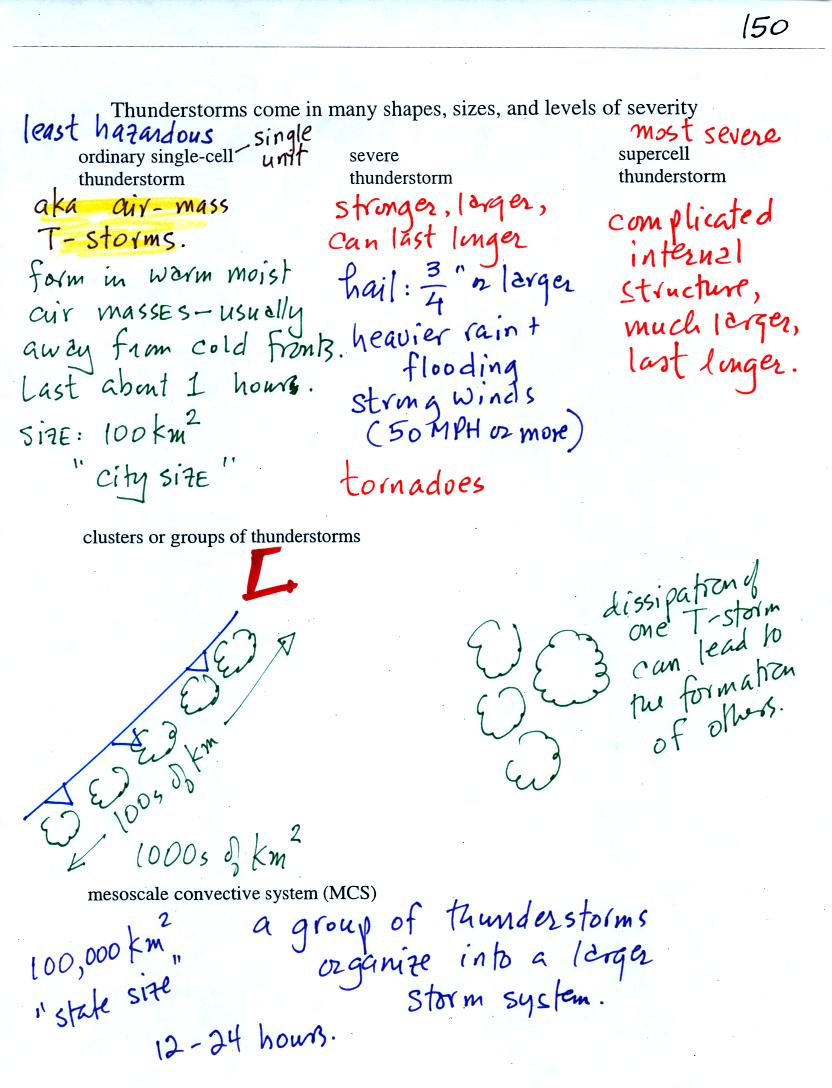 150
Thunderstorms come in many shapes, sizes, and levels of severity
least hazardous
ordinary single-cell
thunderstorm
single
unit
aka air-mass
T-storms.
form in warm moist
air masses - usually
away from cold fronts.
Last about 1 hours.
SIZE: 100 km²
"city SIZE"
severe
thunderstorm
stronger, larger,
can last longer
hail: 3/4" or larger
heavier rain +
flooding
strong winds
(50 MPH or more)
tornadoes
most severe
supercell
thunderstorm
complicated
internal
structure,
much larger,
last longer.
clusters or groups of thunderstorms
L
100s of km
1000s of km²
dissipation of
one T-storm
can lead to
the formation
of others.
mesoscale convective system (MCS)
100,000 km²
"state size"
12-24 hours.
a group of thunderstorms
organize into a larger
storm system.